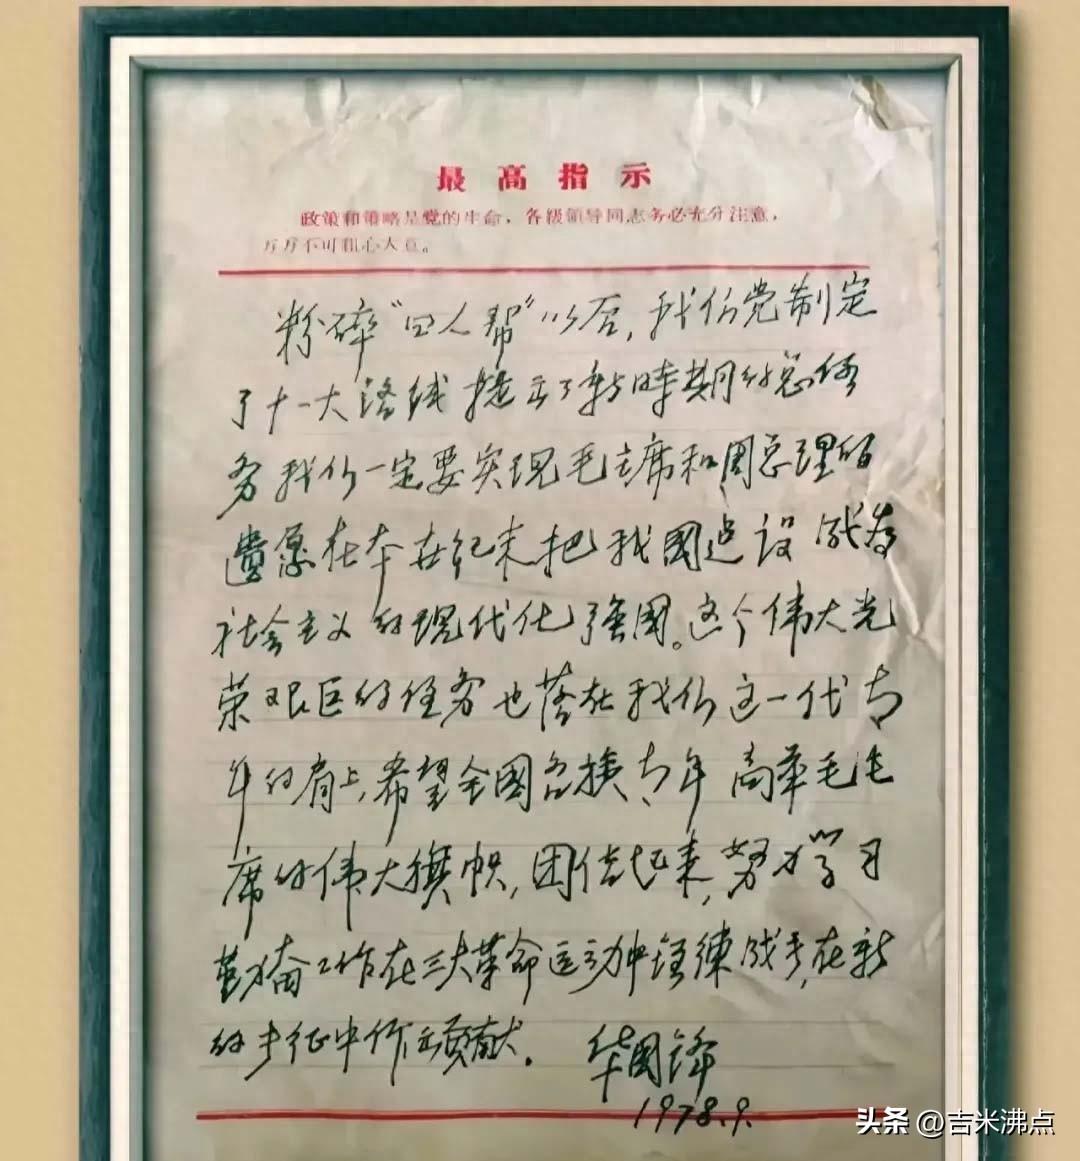 最高指示
政策和策略是党的生命，各级领导同志务必充分注意，
万万不可粗心大意。
粉碎“四人帮”以后，我们党制定
了十一大路线提出了新时期的总任
务我们一定要实现毛主席和周总理的
遗愿在本世纪末把我国建设成为
社会主义的现代化强国。这个伟大光
荣艰巨的任务也落在我们这一代青
年的肩上，希望全国各族青年高举毛主
席的伟大旗帜，团结起来，努力学习
勤奋工作在三大革命运动中锻练成长，在新
的长征中作出贡献．
华国锋
1978.9.
头条 @吉米沸点